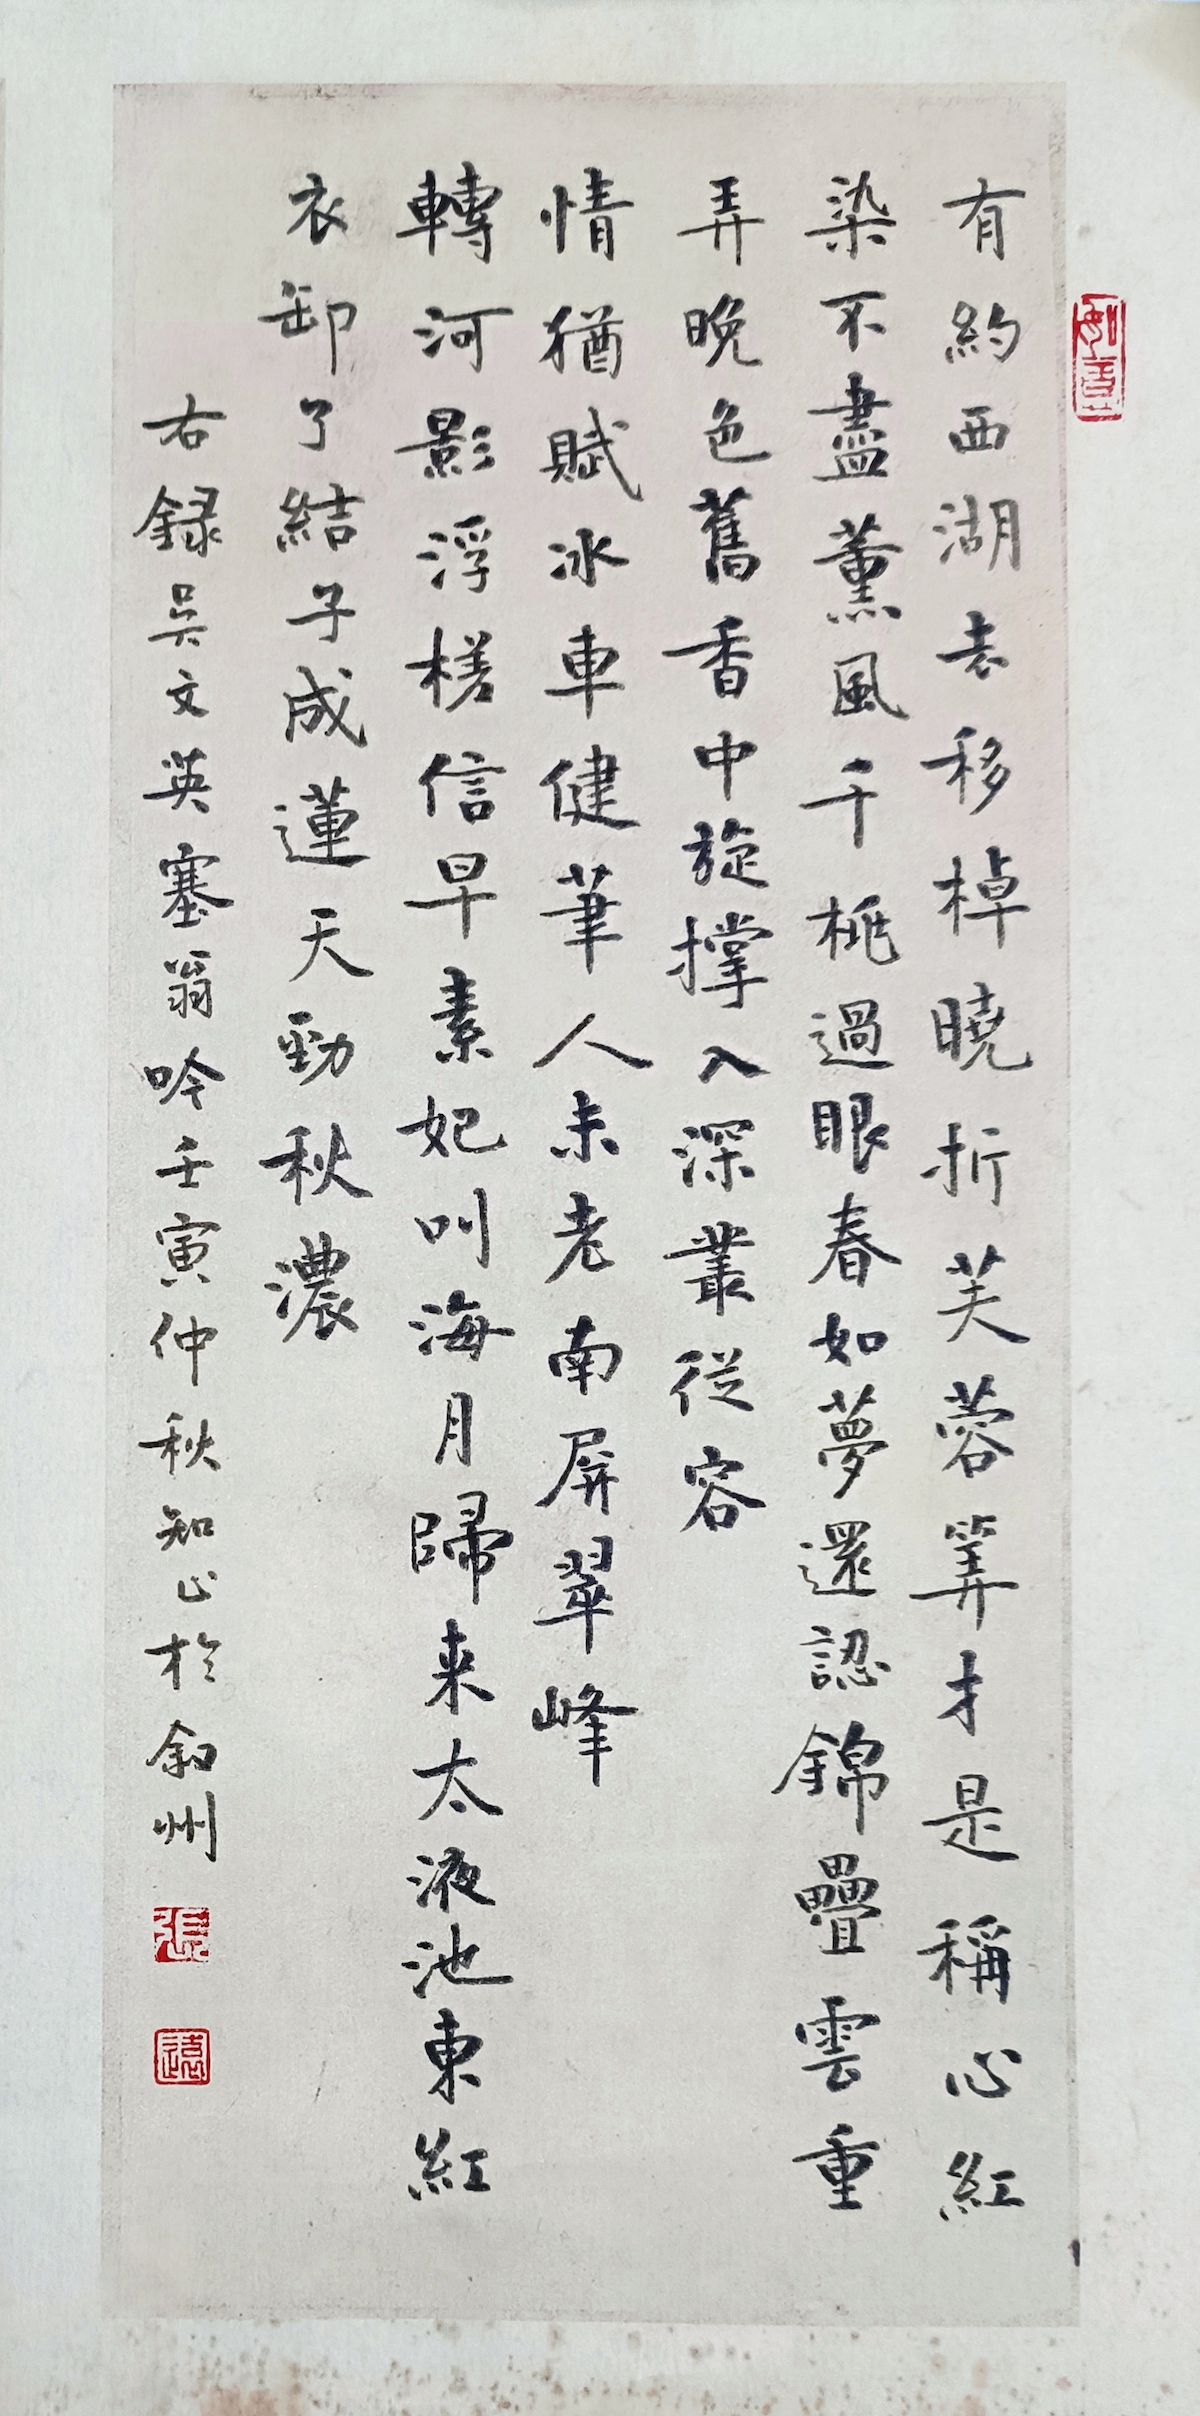 有約西湖去移棹曉折芙蓉筭才是稱心紅
染不盡薰風千桃過眼春如夢還認錦疊雲重
弄晚色舊香中旋撑入深叢從容
情猶賦冰車健筆人未老南屏翠峰
轉河影浮槎信早素妃叫海月歸来太液池東紅
衣卸了結子成蓮天勁秋濃
右録吴文英塞翁吟壬寅仲秋知止於叙州
張
遠